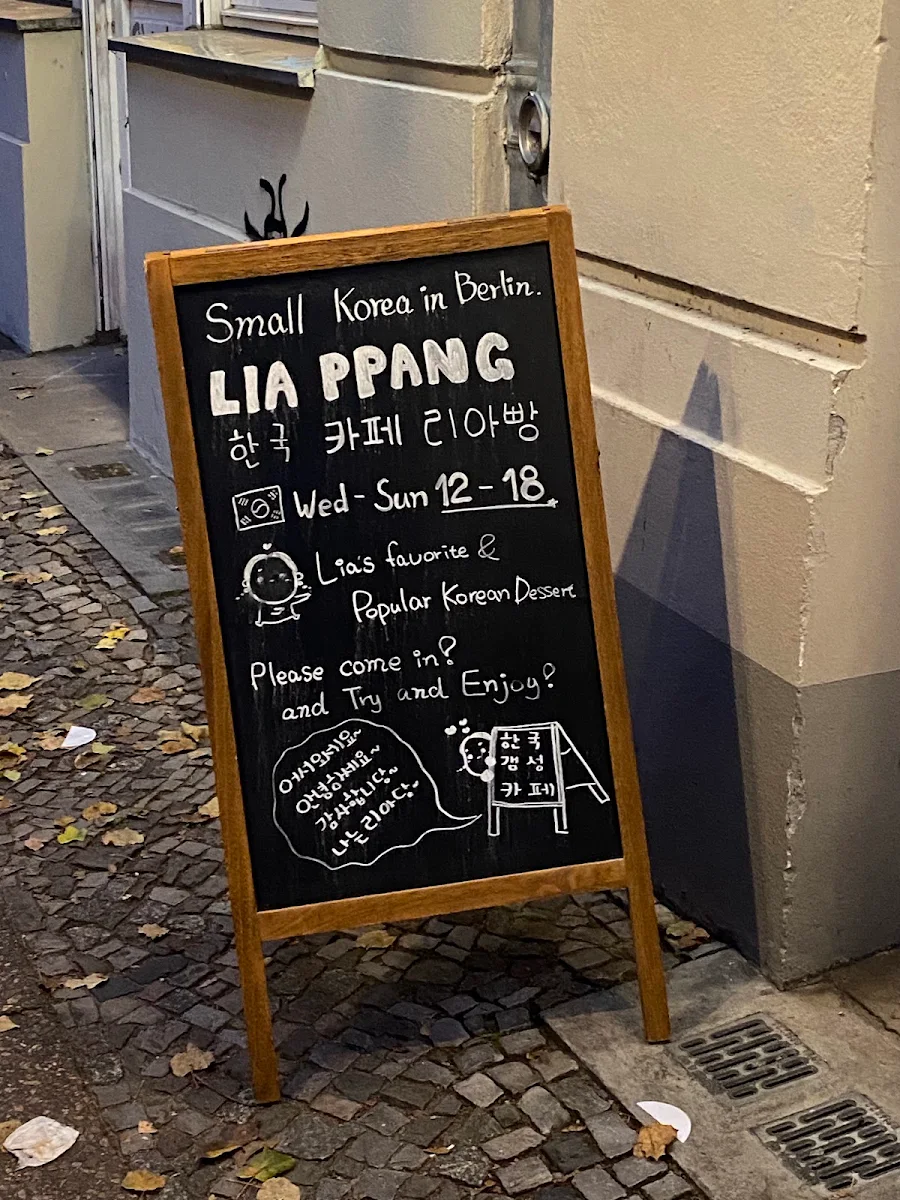 Small Korea in Berlin.
LIA PPANG
한국 카페 리아빵
Wed - Sun 12 - 18
Lia's favorite &
Popular Korean Dessert
Please come in?
and Try and Enjoy?
어서오세요~
안녕하세요~
감사합니당~
나는 리아당~
한국
갬성
카페